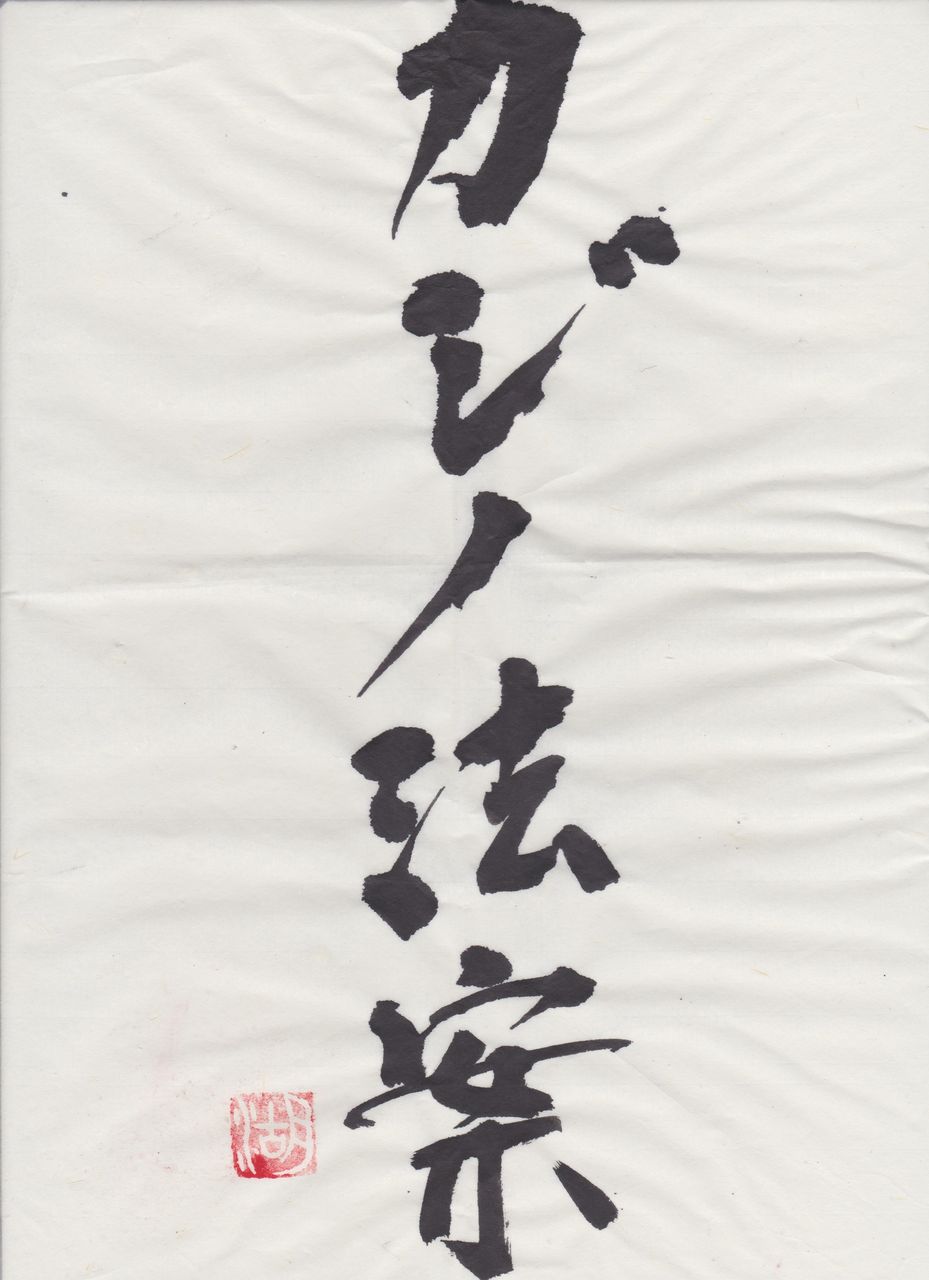 カジノ法案
湖